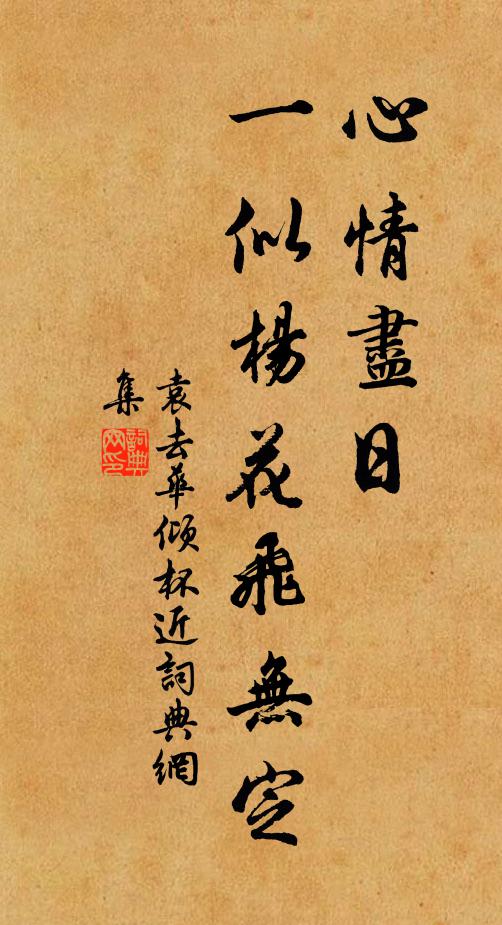 心情盡日
一似楊花飛無定
袁去華傾杯近詞典網
集
詞典網印